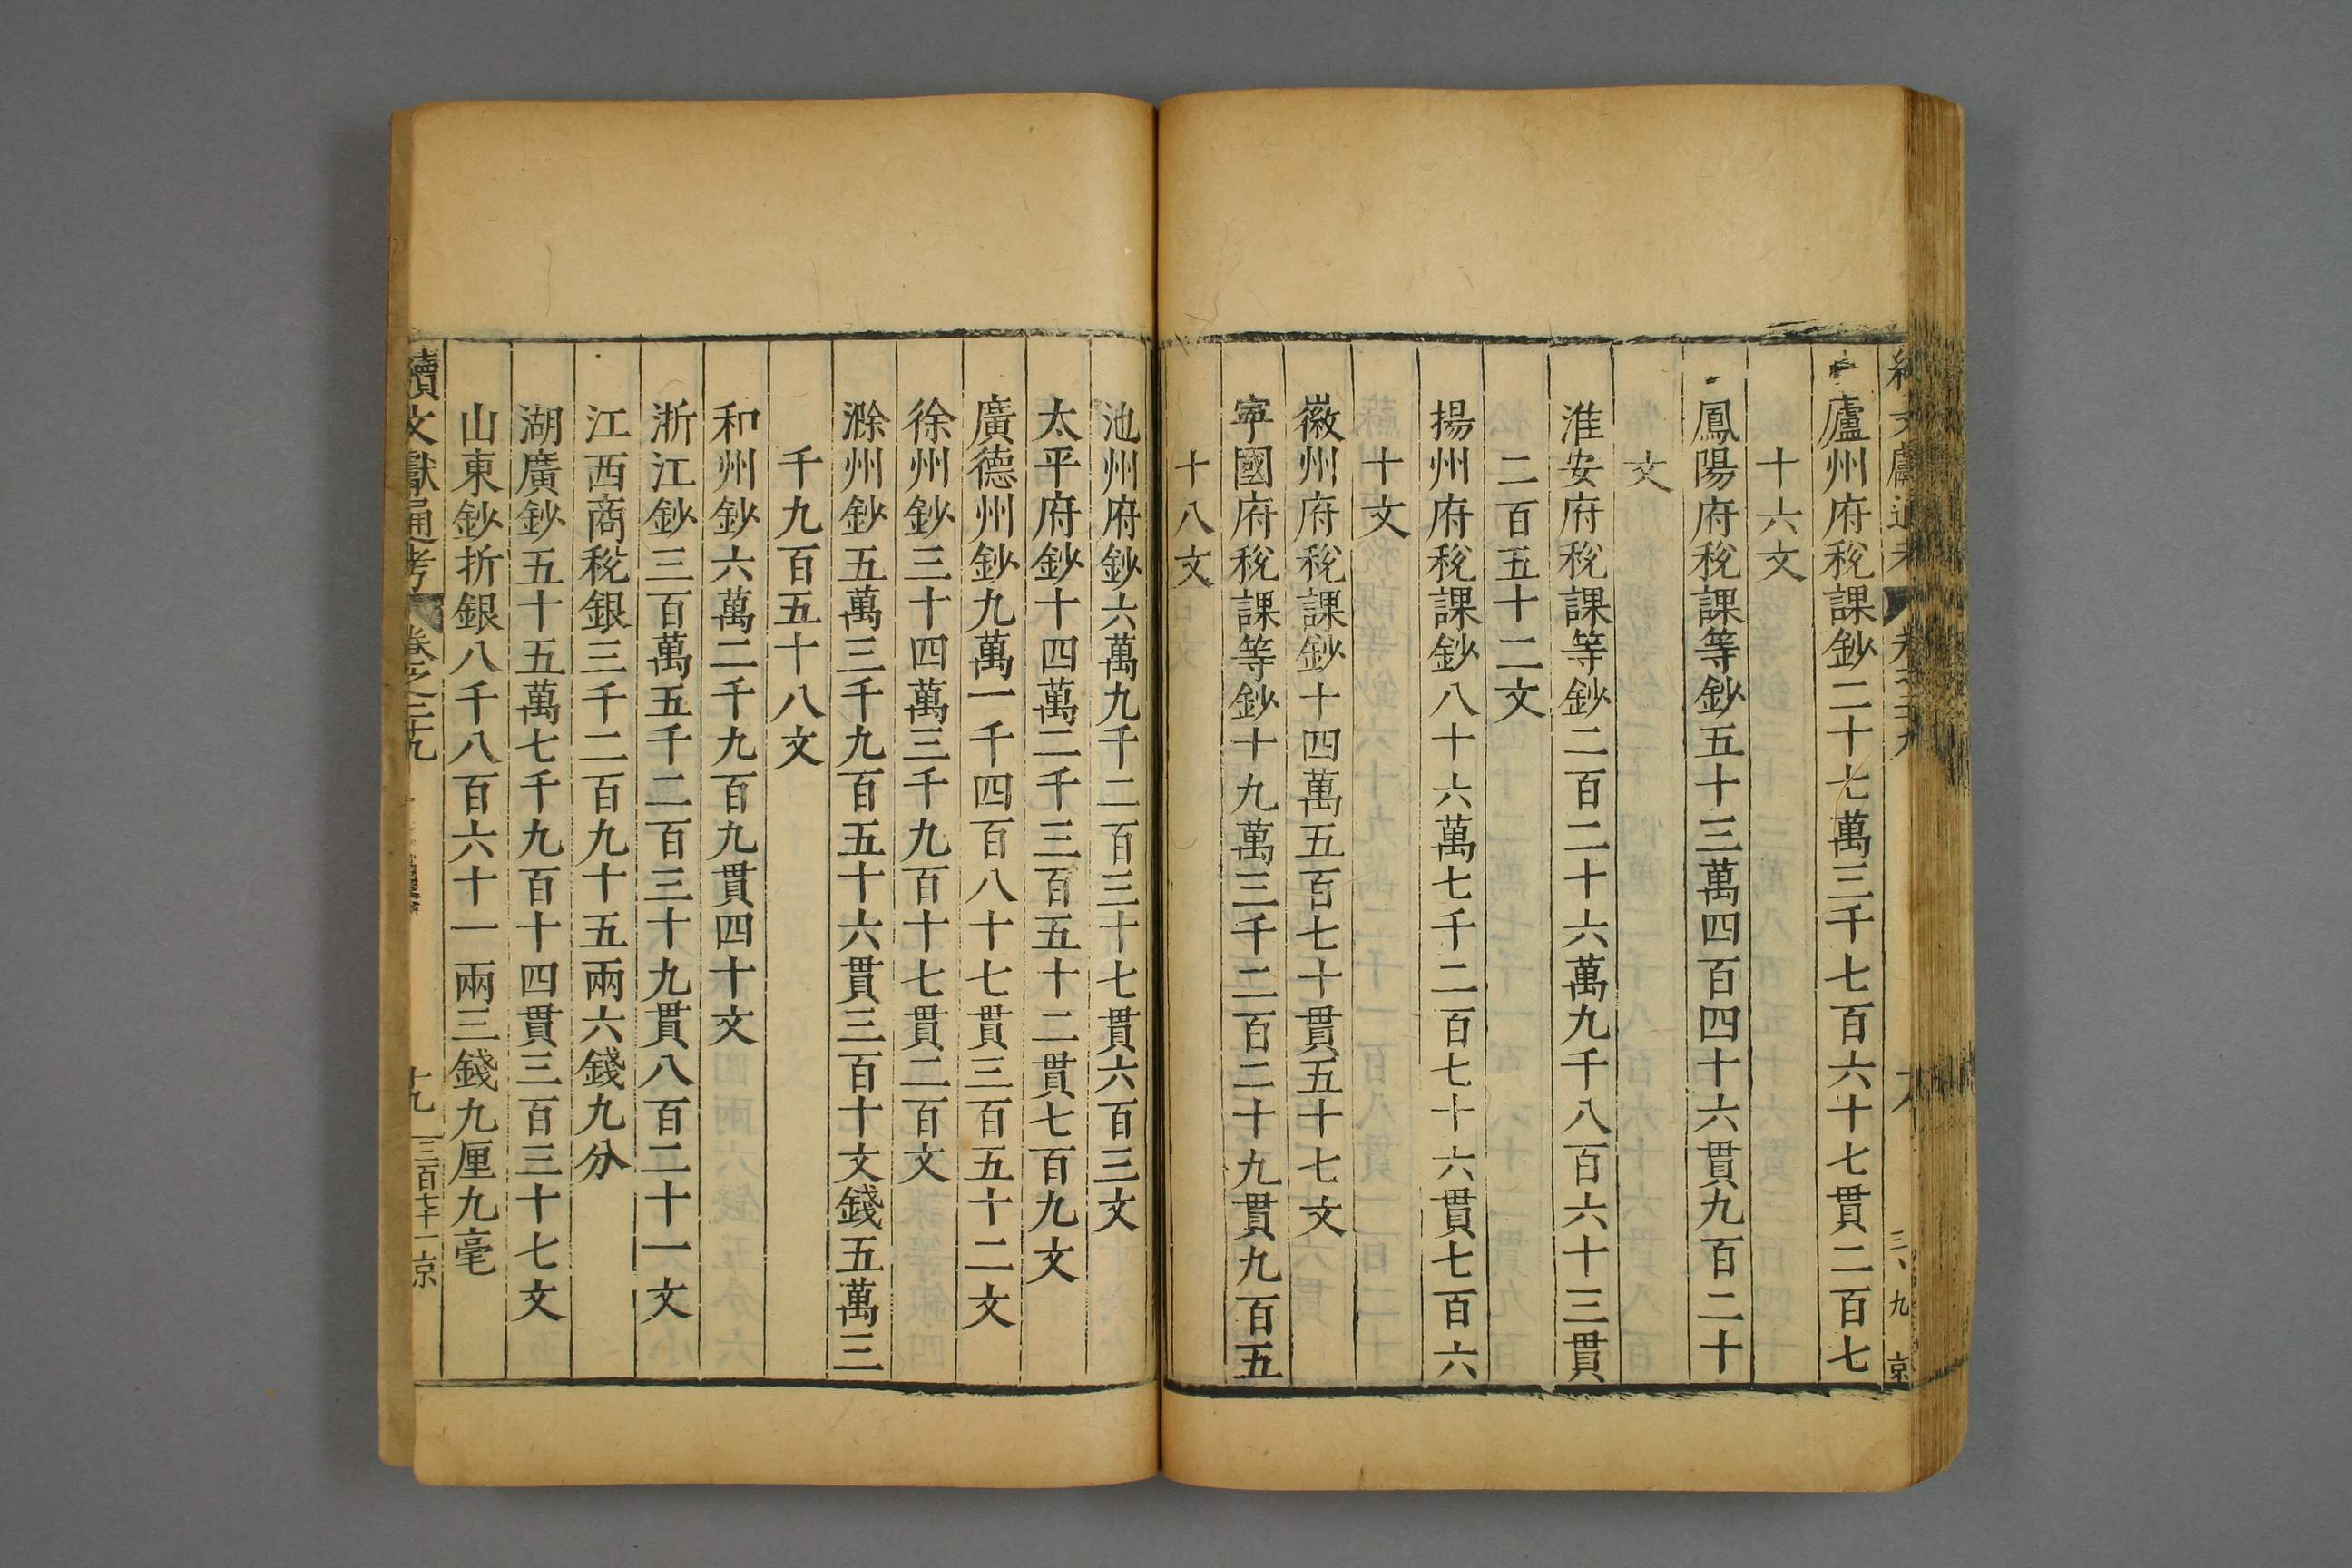 廬州府稅課鈔二十七萬三千七百六十七貫二百七
十六文
鳳陽府稅課等鈔五十三萬四百四十六貫九百二十
文
淮安府稅課等鈔二百二十六萬九千八百六十三貫
二百五十二文
揚州府稅課鈔八十六萬七千二百七十六貫七百六
十文
徽州府稅課鈔十四萬五百七十貫五十七文
寧國府稅課等鈔十九萬三千二百二十九貫九百五
十八文
池州府鈔六萬九千二百三十七貫六百三文
太平府鈔十四萬二千三百五十二貫七百九文
廣德州鈔九萬一千四百八十七貫三百五十二文
徐州鈔三十四萬三千九百十七貫二百文
滁州鈔五萬三千九百五十六貫三百十文錢五萬三
千九百五十八文
和州鈔六萬二千九百九貫四十文
浙江鈔三百萬五千二百三十九貫八百二十一文
江西商稅銀三千二百九十五兩六錢九分
湖廣鈔五十五萬七千九百十四貫三百三十七文
山東鈔折銀八千八百六十一兩三錢九厘九毫
續文獻通考 卷之二十九 十九 三百七十一 京